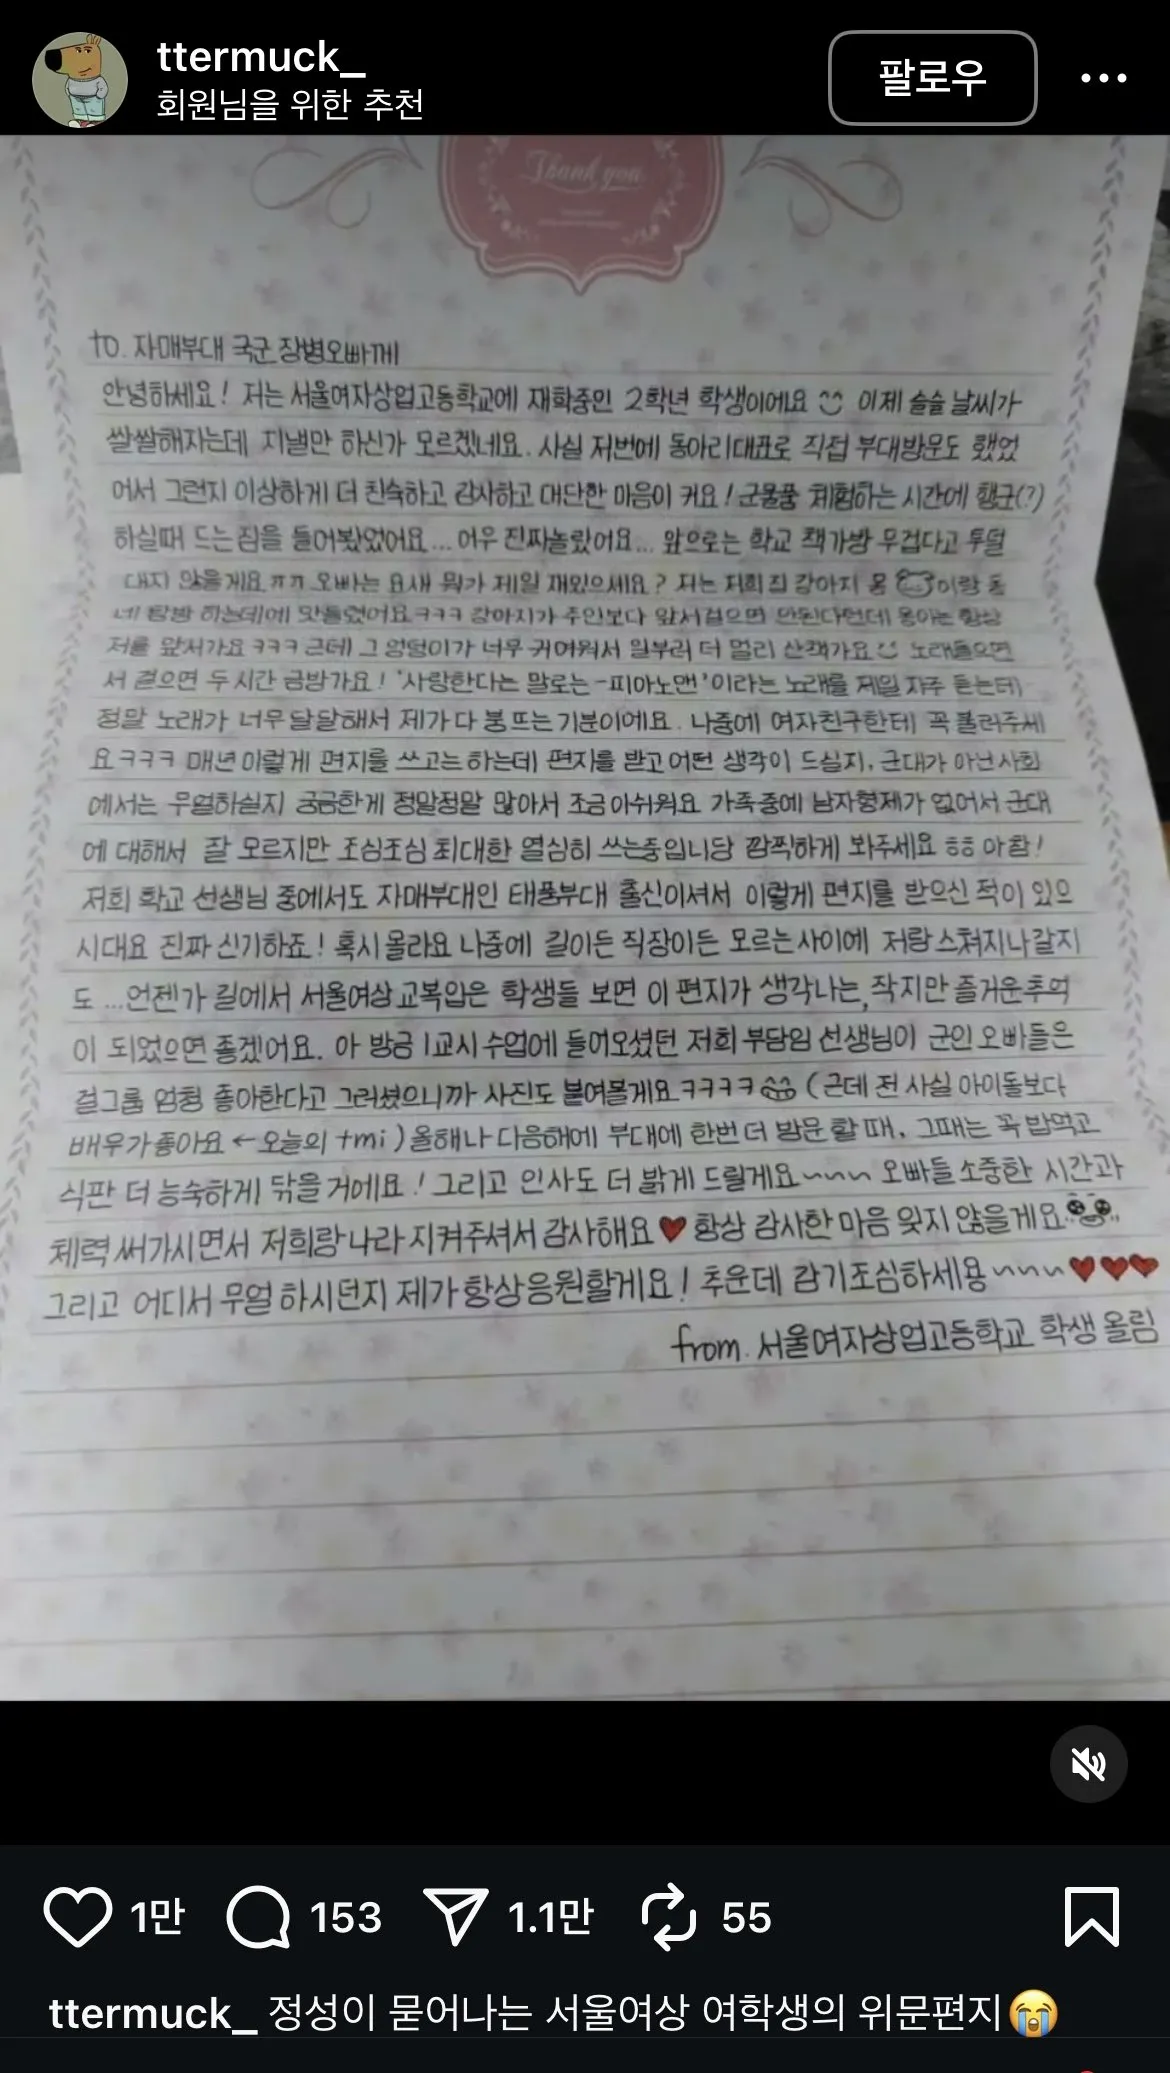 ttermuck_
회원님을 위한 추천
팔로우
Thank you
to. 자매부대 국군 장병오빠께
안녕하세요! 저는 서울여자상업고등학교에 재학중인 2학년 학생이에요 이제 슬슬 날씨가
쌀쌀해지는데 지낼만 하신가 모르겠네요. 사실 저번에 동아리대표로 직접 부대방문도 했었
어서 그런지 이상하게 더 친숙하고 감사하고 대단한 마음이 커요! 군물품 체험하는 시간에 행군(?)
하실때 드는 짐을 들어봤었어요... 어우 진짜놀랐어요... 앞으로는 학교 책가방 무겁다고 투덜
대지 않을게요ㅠㅠ 오빠는 요새 뭐가 제일 재밌으세요? 저는 저희집 강아지 몽이랑 동
네 탐방 하는데에 맛들렸어요ㅋㅋㅋ 강아지가 주인보다 앞서걸으면 안된다던데 몽이는 항상
저를 앞서가요ㅋㅋㅋ 근데 그 엉덩이가 너무 귀여워서 일부러 더 멀리 산책가요 노래들으면
서 걸으면 두시간 금방가요! '사랑한다는 말로는-피아노맨'이라는 노래를 제일 자주 듣는데
정말 노래가 너무 달달해서 제가 다 붕뜨는 기분이에요. 나중에 여자친구한테 꼭 불러주세
요ㅋㅋㅋ 매년 이렇게 편지를 쓰고는 하는데 편지를 받고 어떤 생각이 드실지, 군대가 아닌 사회
에서는 무얼하실지 궁금한게 정말정말 많아서 조금 아쉬워요 가족중에 남자형제가 없어서 군대
에 대해서 잘 모르지만 조심조심 최대한 열심히 쓰는중입니당 깜찍하게 봐주세요 ㅎㅎ 아참!
저희 학교 선생님 중에서도 자매부대인 태풍부대 출신이셔서 이렇게 편지를 받으신 적이 있으
시대요 진짜 신기하죠! 혹시 몰라요 나중에 길이든 직장이든 모르는사이에 저랑 스쳐지나갈지
도 ...언젠가 길에서 서울여상 교복입은 학생들 보면 이 편지가 생각나는, 작지만 즐거운추억
이 되었으면 좋겠어요. 아 방금 1교시 수업에 들어오셨던 저희 부담임 선생님이 군인 오빠들은
걸그룹 엄청 좋아한다고 그러셨으니까 사진도 붙여볼게요ㅋㅋㅋㅋ (근데 전 사실 아이돌보다
배우가 좋아요 ← 오늘의 tmi) 올해나 다음해에 부대에 한번 더 방문 할 때, 그때는 꼭 밥먹고
식판 더 능숙하게 닦을 거에요! 그리고 인사도 더 밝게 드릴게요~~~ 오빠들 소중한 시간과
체력 써가시면서 저희랑 나라 지켜주셔서 감사해요♥ 항상 감사한 마음 잊지 않을게요
그리고 어디서 무얼 하시던지 제가 항상응원할게요! 추운데 감기조심하세용~~~♥♥♥
from. 서울여자상업고등학교 학생 올림
1만 153 1.1만 55
ttermuck_ 정성이 묻어나는 서울여상 여학생의 위문편지😭